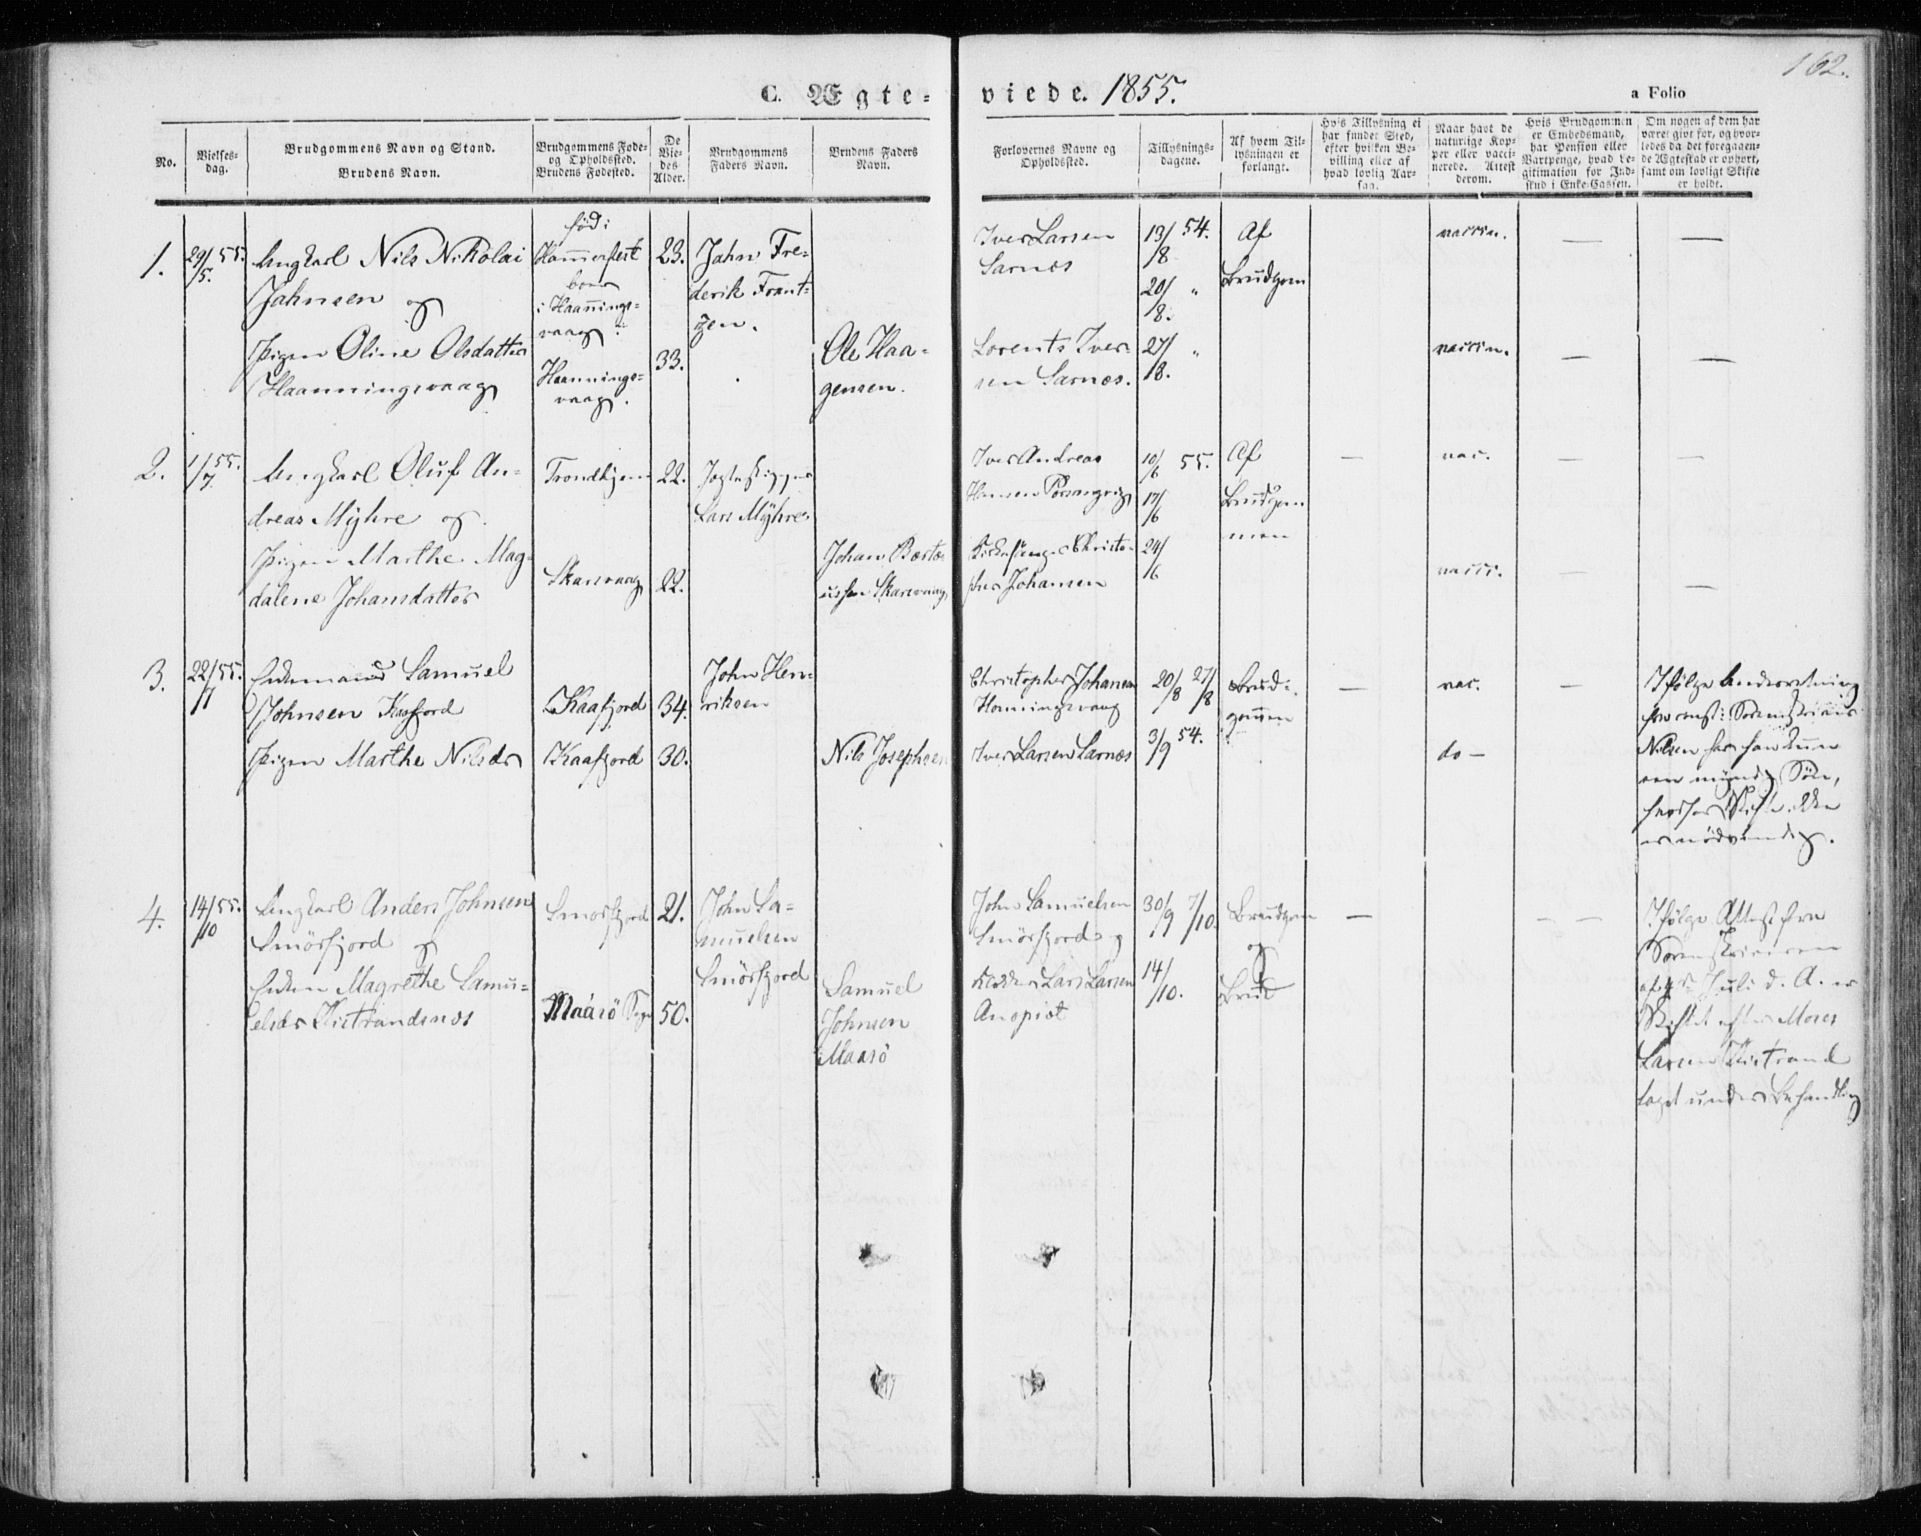 162.
C. Ægte=
viede. 1855.
a Folio
No.
Vielses-
dag.
Brudgommens Navn og Stand.
Brudens Navn.
Brudgommens Føde-
og Opholdssted.
Brudens Fødested.
De
Vie-
des
Alder.
Brudgommens
Faders Navn.
Brudens Faders
Navn.
Forlovernes Navne og
Opholdssted.
Tillysnings-
dagene.
Af hvem Til-
lysningen er
forlangt.
Hvis Tillysning ei
har fundet Sted,
efter hvilken Be-
villing eller af
hvad lovlig Aar-
sag.
Naar havt de
naturlige Kop-
per eller vacci-
nerede. Attest
derom.
Hvis Brudgommen
er Embedsmand,
har Pension eller
Vartpenge, hvad Le-
gitimation for Ind-
skud i Enke-Cassen.
Om nogen af dem har
været gift før, og hvor-
ledes da det foregaaen-
de Ægteskab er ophørt,
samt om lovligt Skifte
er holdt.
1.
29/5. 55.
Ungkarl Nils Nikolai
Jahnsen og
Pigen Oline Olsdatter
Haanningsvaag
fød i
Hammerfest
boer
i Haannings=
vaag.
Haannings=
vaag.
23.
33.
Jahn Fre=
derik Frant=
zen.
Ole Haa=
gensen.
Iver Larsen
Sarnes
Lorents Iver=
sen Sarnes.
13/8 54.
20/8. "
27/8. "
Af
Brudgom
vaccin.
vaccin.
2.
1/7 55.
Ungkarl Oluf An=
dreas Myhre og
Pigen Marthe Mag=
dalene Johansdatter
Trondhjem
Skarsvaag
22.
22.
Jagteskipper
Lars Myhre
Johan
Skarsvaag
Iver Andreas
Hansen
Kirkesanger Christo=
pher Johansen
10/6 55.
17/6
24/6
Af
Brudgom
men
vac.
vacci.
3.
22/7 55.
Enkemand Samuel
Johnsen Kaafjord
Pigen Marthe Nilsdr
Kaafjord
Kaafjord
34.
30.
John Hen=
riksen
Nils Josephsen
Christopher Johansen
Honningsvaag
Iver Larsen Sarnes
20/8 27/8
3/9 54.
Brud=
gommen
vac.
do -
Ifølge Underretning
fra const: Sorenskriver
Nilsen har han kun
een myndig Søn,
hvorfor Skifte ikke
er nødvendig.
4.
14/10 55.
Ungkarl Anders Johnsen
Smörfjord og
Enken Magrethe Samu=
elsdr Kistrandsnæs
Smörfjord
Maasö Sogn
21.
50.
John Sa=
muelsen
Smörfjord
Samuel
Johnsen
Maasö
John Samuelsen
Smörfjord og
Lars Larsen
30/9 7/10.
14/10.
Brudgom
og
Brud
Ifølge Attest fra
Sorenskriveren
Juli d. A. er
Skiftet efter Moses
Larsen Kistrand
taget under Behandling